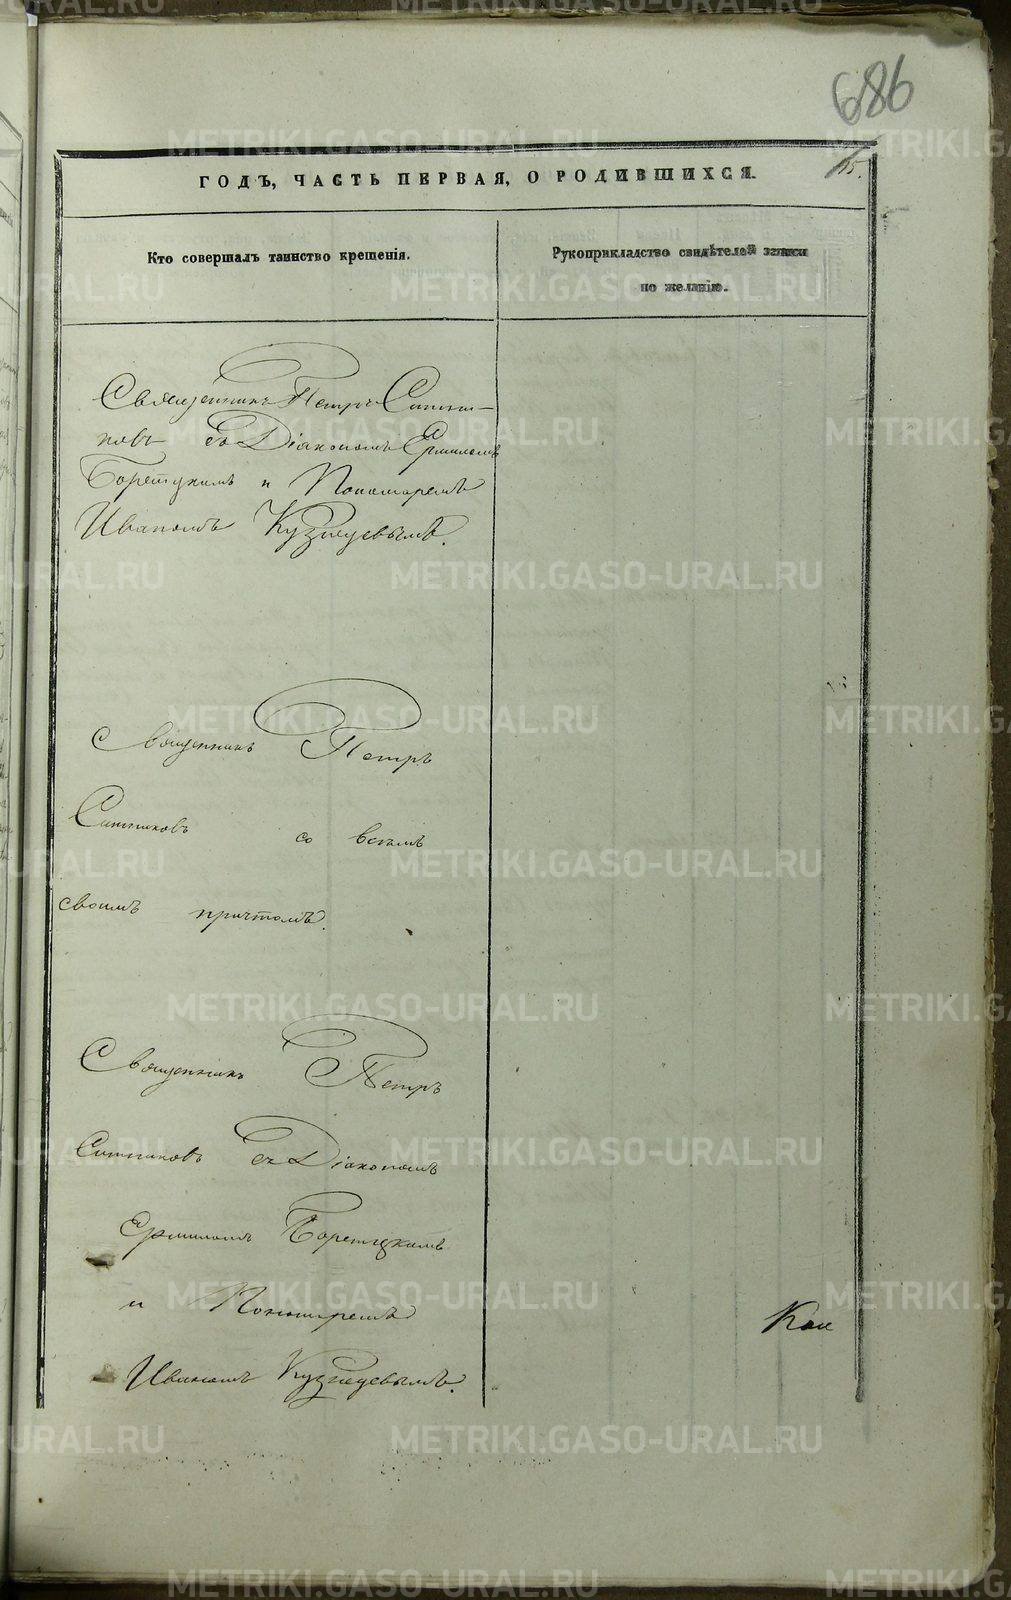 686
15.
ГОДЪ, ЧАСТЬ ПЕРВАЯ, О РОДИВШИХСЯ.
Кто совершалъ таинство крещенія.
Рукоприкладство свидѣтелей записи
по желанію.
Священникъ Петръ Ситни-
ковъ съ Діакономъ Ермиломъ
Борецкимъ и Пономаремъ
Иваномъ Кузнецевымъ.
Священникъ Петръ
Ситниковъ со всемъ
своимъ причтомъ.
Священникъ Петръ
Ситниковъ съ Діакономъ
Ермиломъ Борецкимъ
и Пономаремъ
Иваномъ Кузнецевымъ.
METRIKI.GASO-URAL.RU